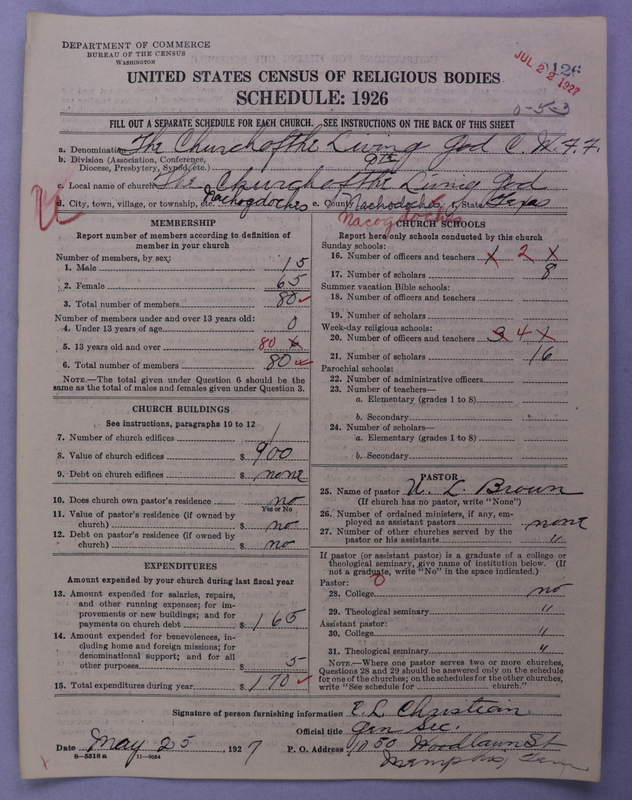 DEPARTMENT OF COMMERCE
BUREAU OF THE CENSUS
WASHINGTON
JUL 22 1927
126
0-5-3
UNITED STATES CENSUS OF RELIGIOUS BODIES
SCHEDULE: 1926
FILL OUT A SEPARATE SCHEDULE FOR EACH CHURCH. SEE INSTRUCTIONS ON THE BACK OF THIS SHEET
a. Denomination The Church of the Living God C. W. F. F.
b. Division (Association, Conference, Diocese, Presbytery, Synod, etc.) 9th
c. Local name of church The Church of the Living God
d. City, town, village, or township, etc. Nacogdoches e. County Nachodoches f. State Texas
Nacogdoches
MEMBERSHIP
Report number of members according to definition of member in your church
Number of members, by sex:
1. Male 15
2. Female 65
3. Total number of members 80
Number of members under and over 13 years old:
4. Under 13 years of age 0
5. 13 years old and over 80
6. Total number of members 80
NOTE.—The total given under Question 6 should be the same as the total of males and females given under Question 3.
CHURCH BUILDINGS
See instructions, paragraphs 10 to 12
7. Number of church edifices 1
8. Value of church edifices $ 900
9. Debt on church edifices $ none
10. Does church own pastor's residence no
Yes or No
11. Value of pastor's residence (if owned by church) $ no
12. Debt on pastor's residence (if owned by church) $ no
EXPENDITURES
Amount expended by your church during last fiscal year
13. Amount expended for salaries, repairs, and other running expenses; for improvements or new buildings; and for payments on church debt $ 165
14. Amount expended for benevolences, including home and foreign missions; for denominational support; and for all other purposes $ 5
15. Total expenditures during year $ 170
CHURCH SCHOOLS
Report here only schools conducted by this church
Sunday schools:
16. Number of officers and teachers 1 2 X
17. Number of scholars 8
Summer vacation Bible schools:
18. Number of officers and teachers
19. Number of scholars
Week-day religious schools:
20. Number of officers and teachers 3 4 1
21. Number of scholars 16
Parochial schools:
22. Number of administrative officers
23. Number of teachers—
a. Elementary (grades 1 to 8)
b. Secondary
24. Number of scholars—
a. Elementary (grades 1 to 8)
b. Secondary $
PASTOR
25. Name of pastor N. L. Brown
(If church has no pastor, write "None")
26. Number of ordained ministers, if any, employed as assistant pastors none
27. Number of other churches served by the pastor or his assistants "
If pastor (or assistant pastor) is a graduate of a college or theological seminary, give name of institution below. (If not a graduate, write "No" in the space indicated.)
Pastor: 0
28. College no
29. Theological seminary "
Assistant pastor:
30. College "
31. Theological seminary "
NOTE.—Where one pastor serves two or more churches, Questions 28 and 29 should be answered only on the schedule for one of the churches; on the schedules for the other churches, write "See schedule for ........ church."
Signature of person furnishing information E. L. Christian
Official title Gen Sec.
Date May 25, 1927 P. O. Address 1050 Woodlawn St
Memphis, Tenn
8—5518 a 11—9084